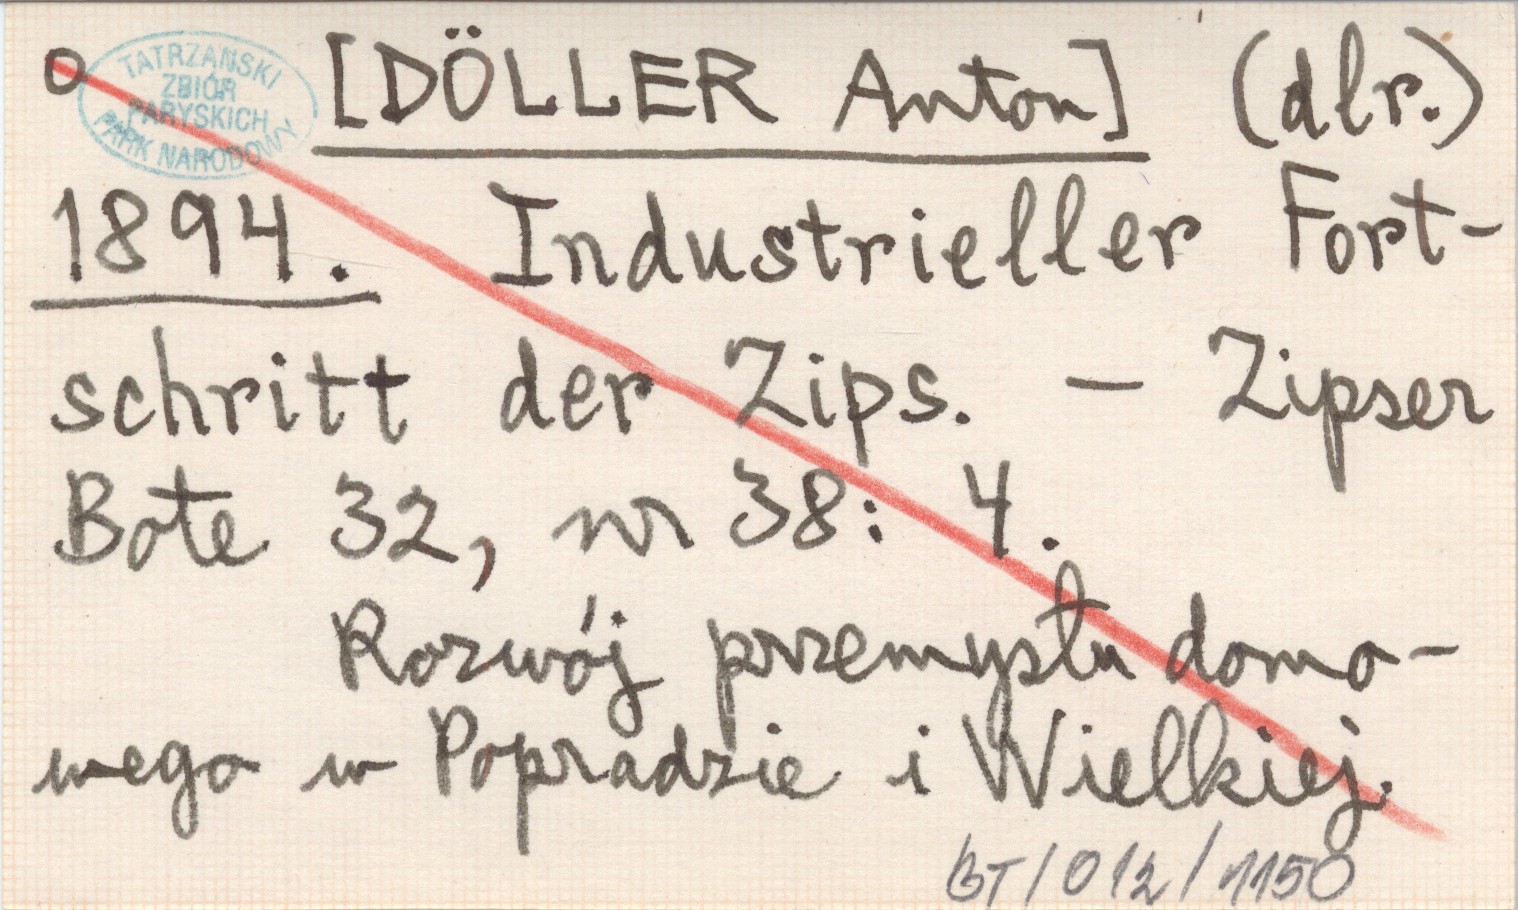 TATRZAŃSKI
ZBIÓR
PARYSKICH
PARK NARODOWY
[DÖLLER Anton] (dlr.)
1894. Industrieller Fort-
schritt der Zips. — Zipser
Bote 32, nr 38: 4.
Rozwój przemysłu domo-
wego w Popradzie i Wielkiej.
BT/012/1150